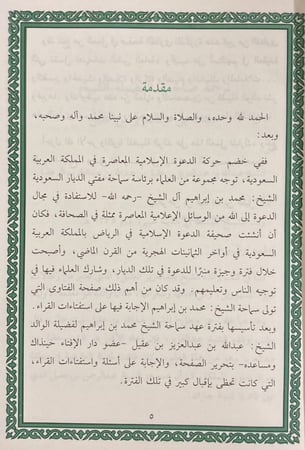 مقدمة
الحمد لله وحده، والصلاة والسلام على نبينا محمد وآله وصحبه،
وبعد:
ففي خضم حركة الدعوة الإسلامية المعاصرة في المملكة العربية
السعودية، توجه مجموعة من العلماء برئاسة سماحة مفتي الديار السعودية
الشيخ: محمد بن إبراهيم آل الشيخ -رحمه الله- للاستفادة في مجال
الدعوة إلى الله من الوسائل الإعلامية المعاصرة ممثلة في الصحافة، فكان
أن أنشئت صحيفة الدعوة الإسلامية في الرياض بالمملكة العربية
السعودية في أواخر الثمانينات الهجرية من القرن الماضي، وأصبحت
خلال فترة وجيزة منبرًا للدعوة في تلك الديار، وشارك العلماء فيها في
توجيه الناس وتعليمهم. وقد كان من أهم ذلك صفحة الفتاوى التي
تولى سماحة الشيخ: محمد بن إبراهيم الإجابة فيها على استفتاءات القراء.
وبعد تأسيسها بفترة عهد سماحة الشيخ محمد بن إبراهيم لفضيلة الوالد
الشيخ: عبدالله بن عبدالعزيز بن عقيل -عضو دار الإفتاء حينذاك
ومساعده- بتحرير الصفحة، والإجابة على أسئلة واستفتاءات القراء،
التي كانت تحظى بإقبال كبير في تلك الفترة.
٥